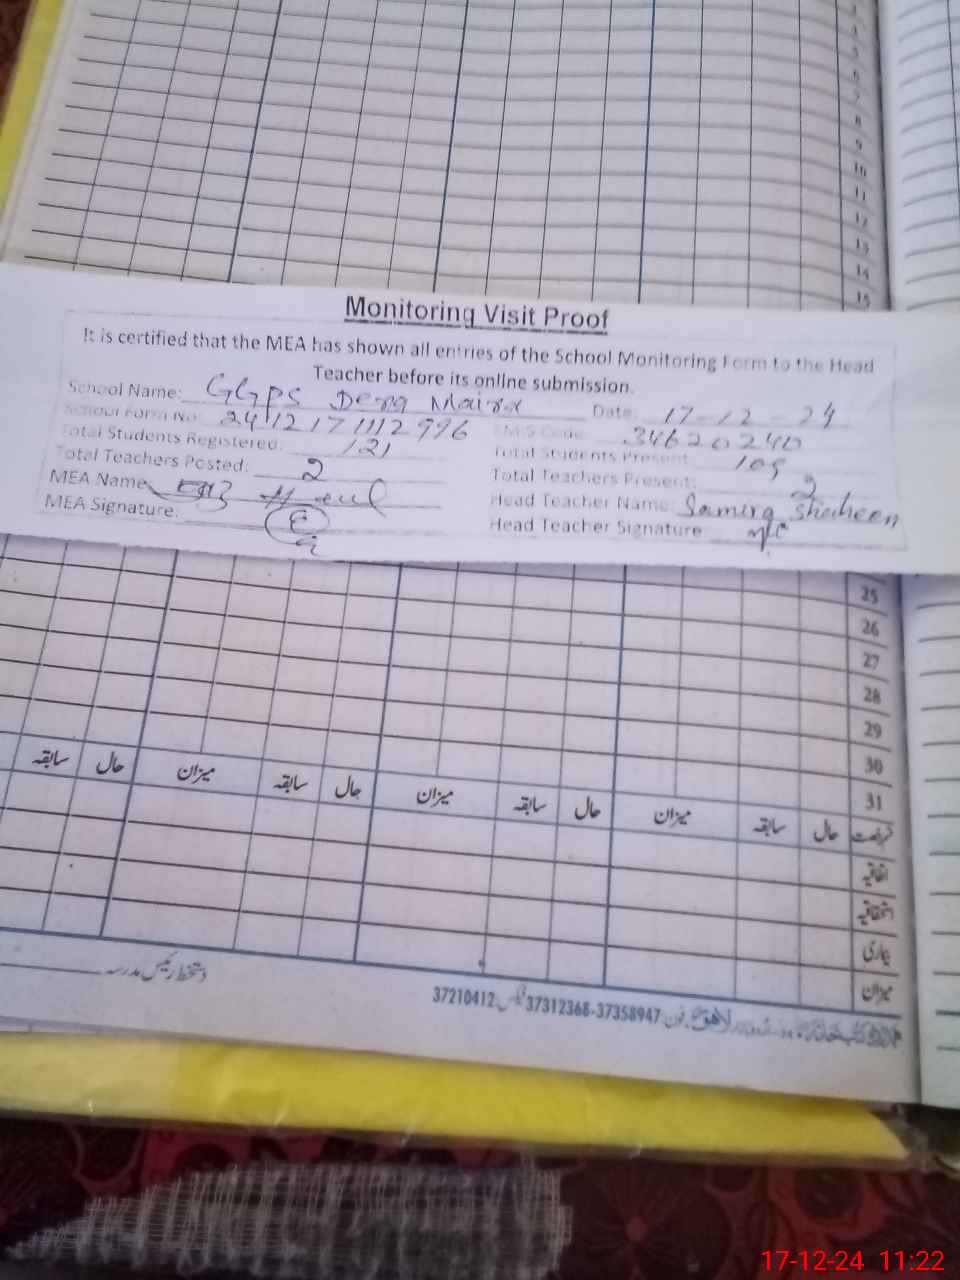 5
6
7
8
9
10
11
12
13
14
15
Monitoring Visit Proof
It is certified that the MEA has shown all entries of the School Monitoring Form to the Head
Teacher before its online submission.
School Name: GGPS Dera Maira Date: 17-12-24
School Form No: 2412171112996 EMIS Code: 34620240
Total Students Registered: 121 Total Students Present: 109
Total Teachers Posted: 2 Total Teachers Present: 2
MEA Name: Head Teacher Name: Samira Shaheen
MEA Signature: Head Teacher Signature
25
26
27
28
29
30
31
فرصت حال سابقہ میزان حال سابقہ میزان حال سابقہ میزان حال سابقہ
اتفاقیہ
استحقاقیہ
بیماری
میزان
دستخط رئیس مدرسہ
لاہور فون: 37358947-37312368 فیکس 37210412
17-12-24 11:22